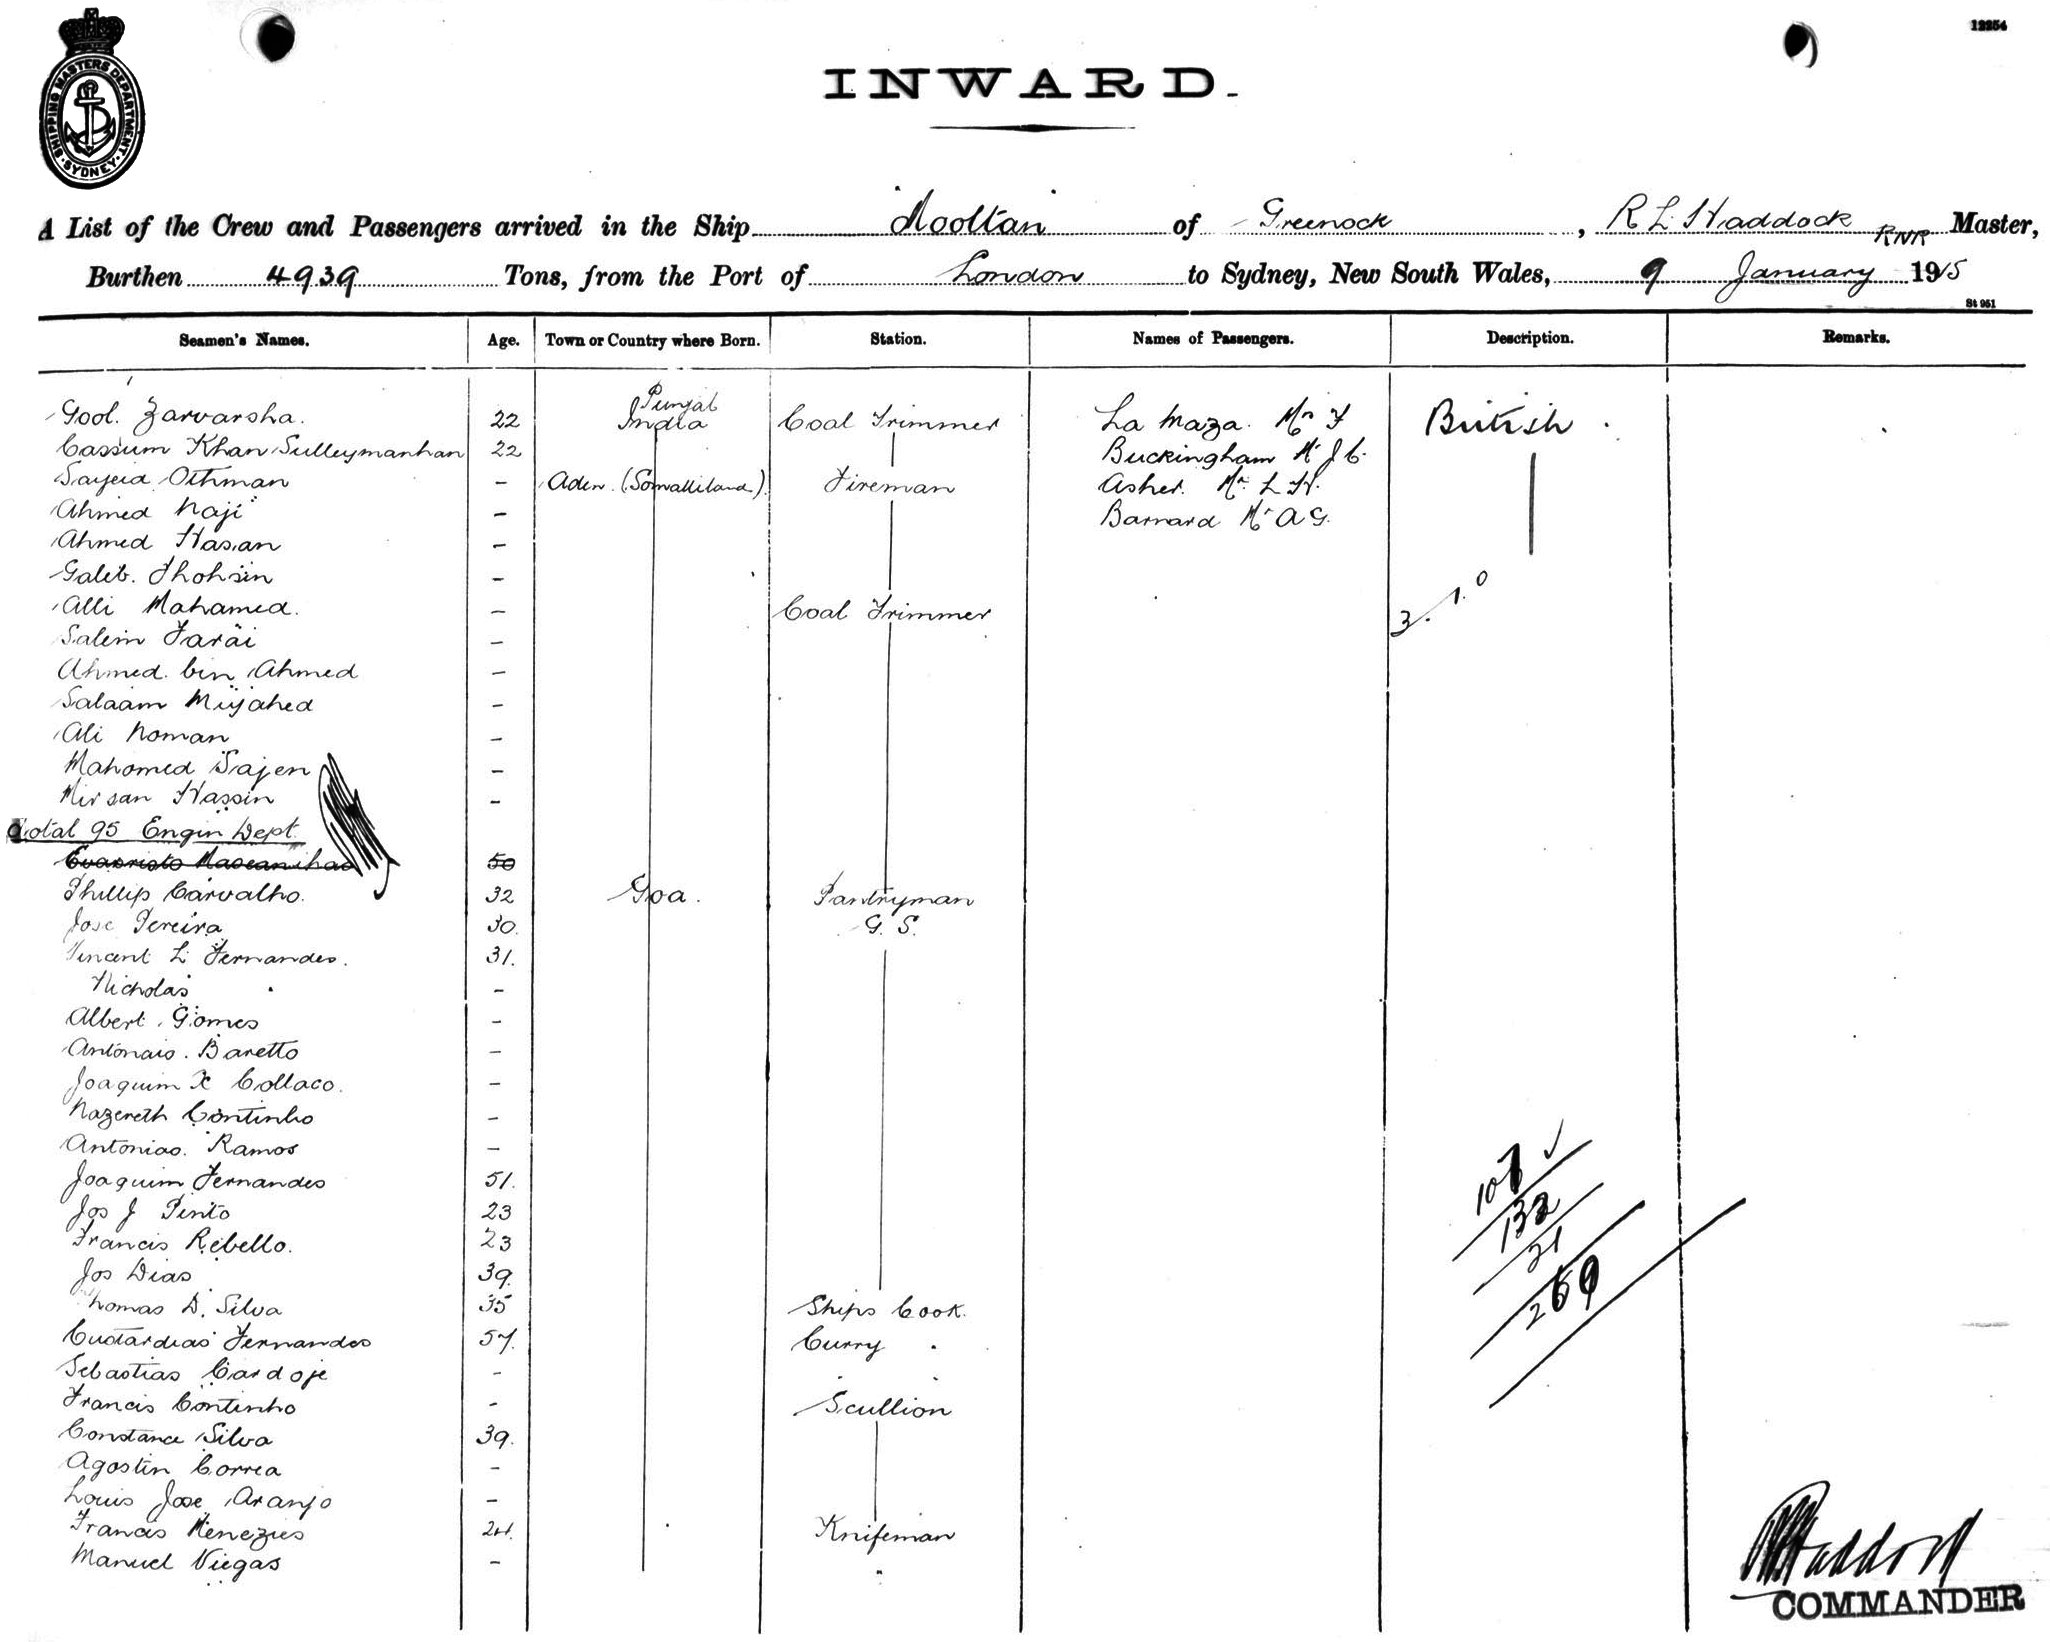 12254
SHIPPING MASTERS DEPARTMENT
SYDNEY
INWARD.
A List of the Crew and Passengers arrived in the Ship Mooltan of Greenock, R L Haddock RNR Master,
Burthen 4939 Tons, from the Port of London to Sydney, New South Wales, 9 January 1915
St 951
Seamen's Names. Age. Town or Country where Born. Station. Names of Passengers. Description. Remarks.
Gool Zarvarsha. 22 Punjab India Coal Trimmer La Maza. Mrs F British
Cassum Khan Sulleymanhan 22 Buckingham Mr J C.
Sayeid Othman - Aden (Somaliland) Fireman Asher. Mr L H.
Ahmed Naji - Barnard Mr A G.
Ahmed Hassan -
Galeb. Thohsin -
Alli Mahamed. - Coal Trimmer 3. 1. 0
Salem Farai -
Ahmed bin Ahmed -
Salaam Mujahed -
Ali Noman -
Mahomed Sajen -
Mirsan Hassin -
Total 95 Engin Dept.
50
Phillip Carvalho. 32 Goa. Pantryman
Jose Pereira 30. G. S.
Vincent L Fernandes. 31.
Nicholas -
Albert Gomes -
Antonaio. Baretto -
Joaquim X Collaco. -
Nazereth Continho -
Antoniao. Ramos -
Joaquim Fernandes 51. 107
Jos J Pinto 23 132
Francis Rebello. 23 21
Jos Dias 39. 269
Thomas D. Silva 35 Ships Cook.
Custardias Fernandes 57. Curry "
Sebastias Cardoje -
Francis Continho - Scullion
Constance Silva 39.
Agostin Correa -
Louis Jose Aranjo -
Francis Menezies 24. Knifeman
Manuel Viegas - "
R L Haddock
COMMANDER